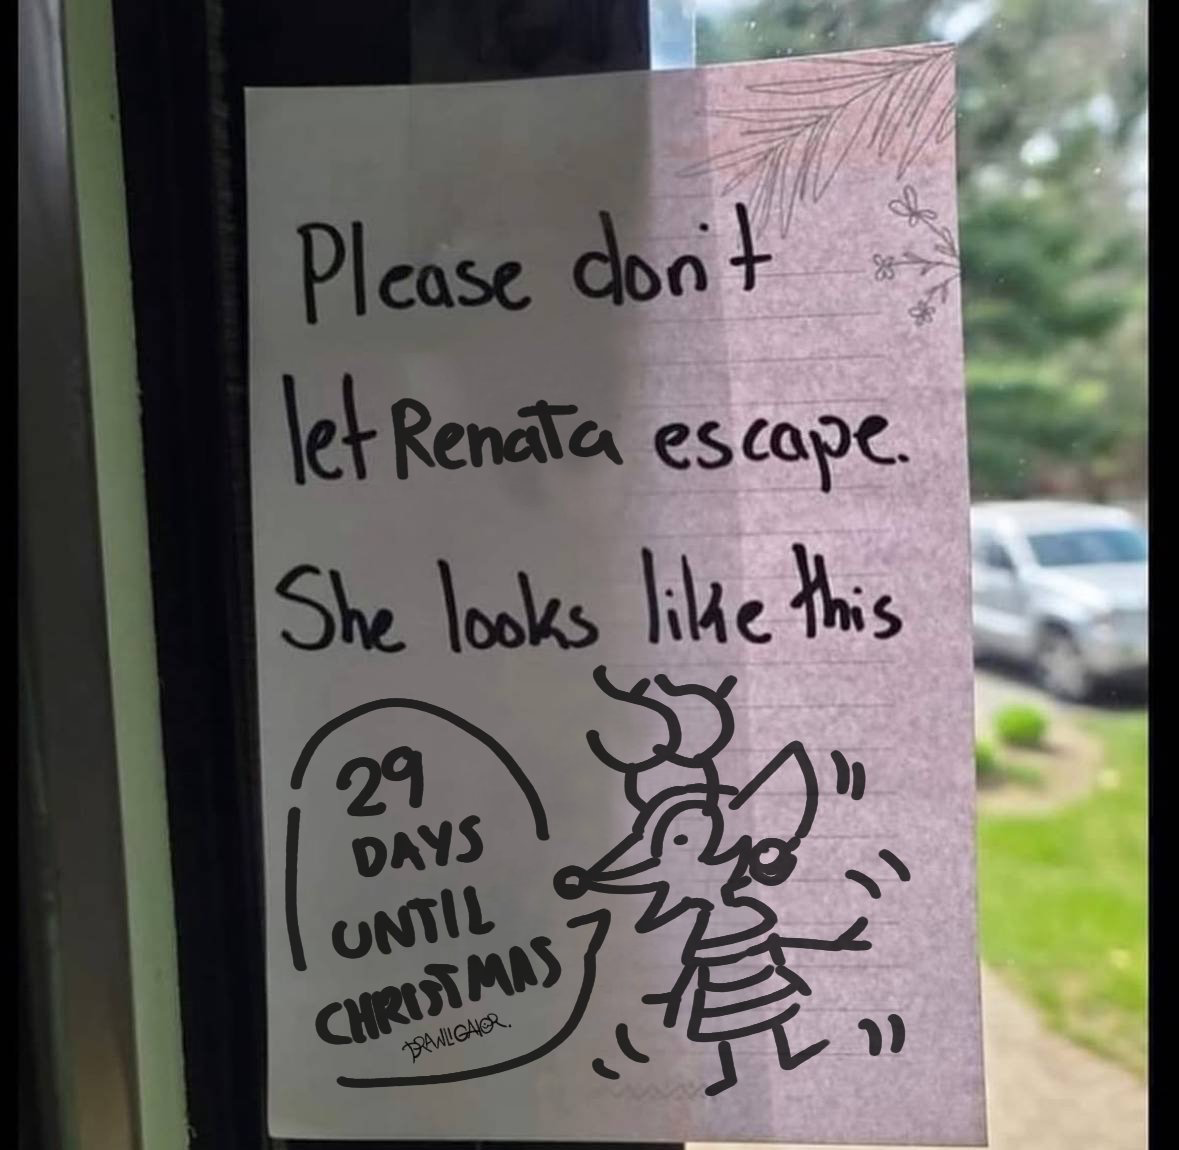 Please don't
let Renata escape.
She looks like this
29
DAYS
UNTIL
CHRISTMAS
DRAWLIGATOR.